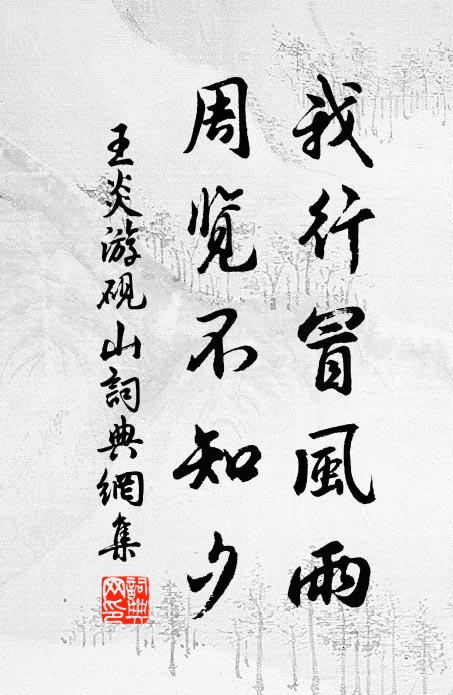 我行冒風雨
周览不知夕
王炎游砚山詞典網集
詞典網印